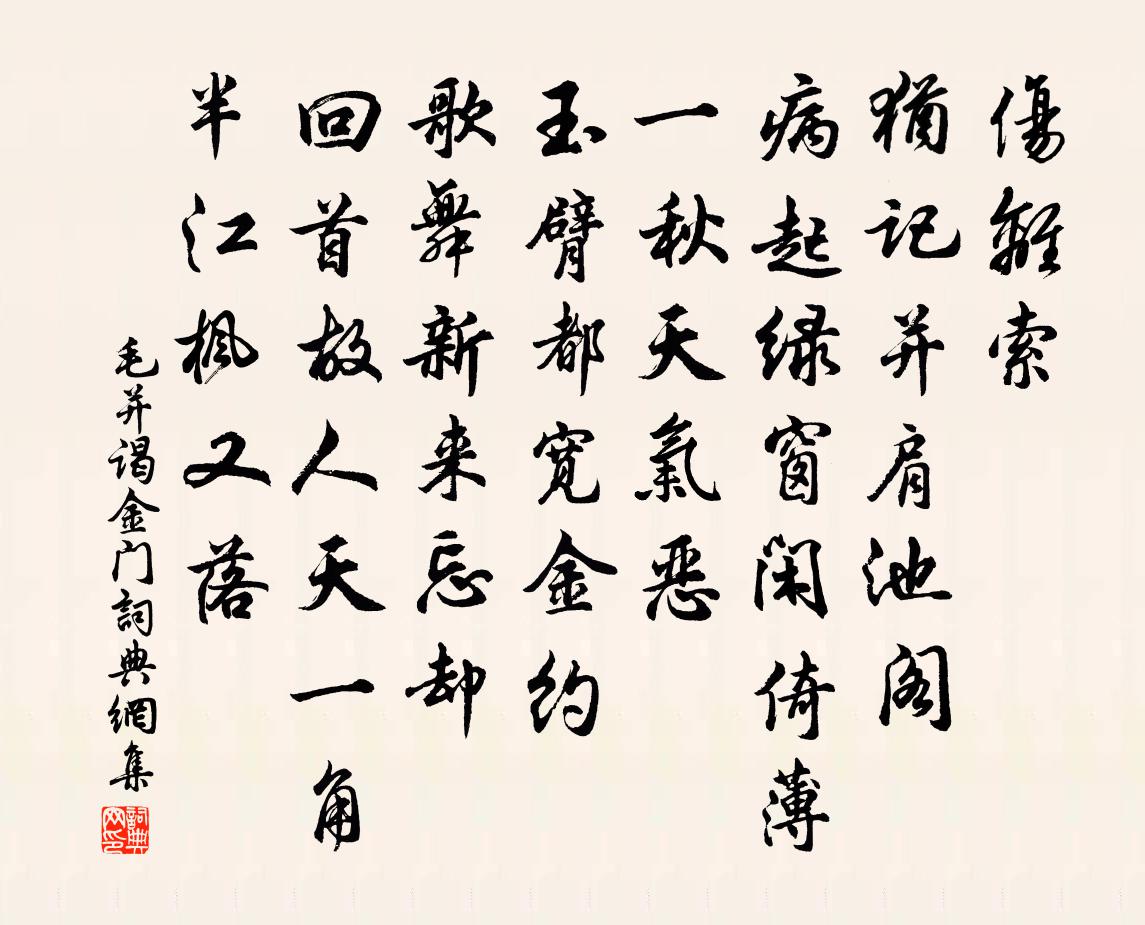 傷離索
猶記并肩池閣
病起绿窗闲倚薄
一秋天氣恶
玉臂都宽金约
歌舞新来忘却
回首故人天一角
半江枫又落
毛并谒金门詞典網集
詞典网印